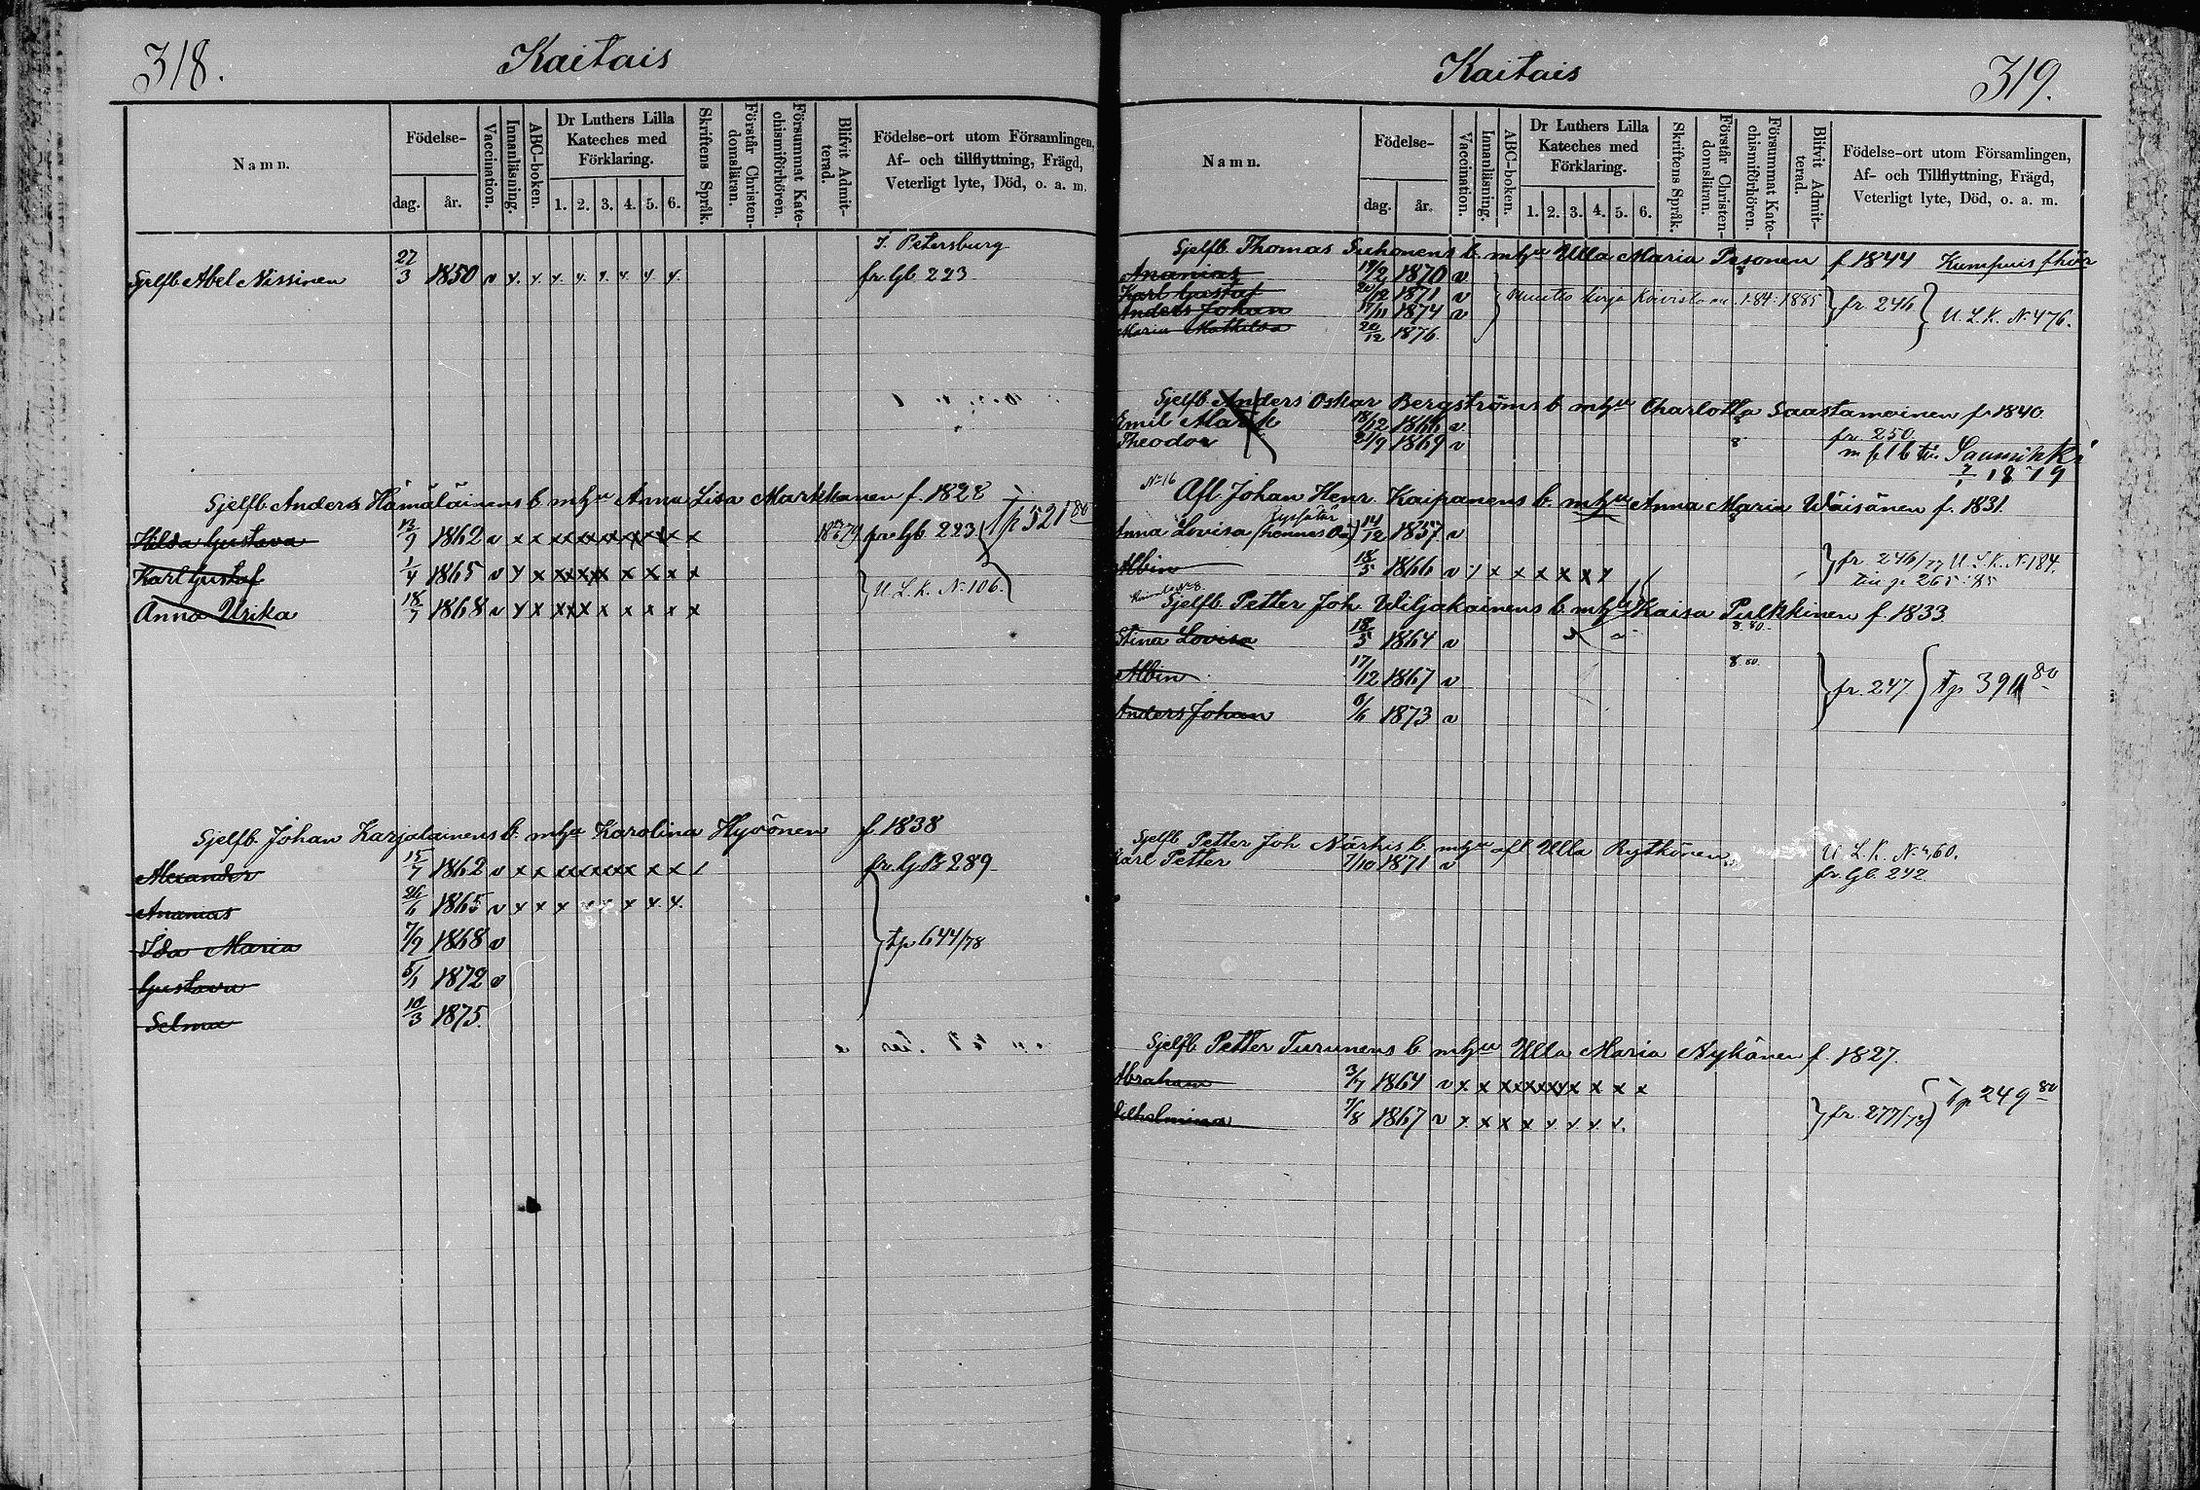 318.
Kaitais
Namn.
Födelse-
dag. år.
Vaccination.
Innanläsning.
ABC-boken.
Dr Luthers Lilla
Kateches med
Förklaring.
1. 2. 3. 4. 5. 6.
Skriftens Språk.
Förstår Christen-
domsläran.
Försummat Kate-
chismiförhören.
Blifvit Admit-
terad.
Födelse-ort utom Församlingen,
Af- och tillflyttning, Frägd,
Veterligt lyte, Död, o. a. m.
Petersburg
Sjelfb. Abel Nissinen 27/3 1850 v fr. Gb 223
Sjelfb Anders Hämäläinens b. mhu Anna Lisa Markkanen f. 1828
Hilda Gustava 13/9 1862 v x x x x x x x x x fr. Gb. 223 tp 521 80
Karl Gustaf 1/4 1865 v x x x x x x x x x U.L.K. N. 106.
Anna Urika 18/7 1868 v x x x x x x x x x
Sjelfb. Johan Karjalainens b. mhu Karolina Hyvönen f. 1838
Alexander 15/7 1862 v x x x x x x x x fr. Gb 289
Ananias 26/6 1865 v x x x x x x x x
Ida Maria 7/9 1868 v tp 644/78
Gustava 5/1 1872 v
Selma 10/3 1875.
Kaitais
319.
Namn.
Födelse-
dag. år.
Vaccination.
Innanläsning.
ABC-boken.
Dr Luthers Lilla
Kateches med
Förklaring.
1. 2. 3. 4. 5. 6.
Skriftens Språk.
Förstår Christen-
domsläran.
Försummat Kate-
chismiförhören.
Blifvit Admit-
terad.
Födelse-ort utom Församlingen,
Af- och Tillflyttning, Frägd,
Veterligt lyte, Död, o. a. m.
Sjelfb. Thomas Suhonens b. mhu Ulla Maria Pesonen f 1844
Ananias 19/2 1870 v
Karl Gustaf 1871 v 1885 fr. 246
Anders Johan 17/11 1874 v U.L.K. N. 476.
Maria Mathilda 20/12 1876.
Sjelfb. Anders Oskar Bergströms b. mhu Charlotta Saastamoinen f. 1840.
Emil 18/12 1866 v
Theodor 21/9 1869 v 8 fr. 250
1879
No 16
Afl. Johan Henr. Kaipanens b. mhu Anna Maria Wäisänen f. 1831.
Anna Lovisa 14/12 1857 v
Albin 18/5 1866 v x x x x x x fr. 246/77 U.L.K. N. 184.
p. 265 : 85
Sjelfb. Petter Joh Wiljakainens b. mhu Kaisa Pulkkinen f. 1833.
Stina Lovisa 18/5 1864 v
Albin 17/12 1867 v 8 80. fr. 247 tp 391 80
Anders Johan 6/6 1873 v
Sjelfb Petter Joh Närhis b. mhu afl Ulla Rytkönen U.L.K. N. 460.
Karl Petter 7/10 1871 v fr. Gb. 242.
Sjelfb Petter Turunens b mhu Ulla Maria Nykänen f. 1827.
Abraham 3/7 1864 v x x x x x x x x x
Vilhelmina 7/8 1867 v x x x x x x x x fr. 277/78 tp 249 80